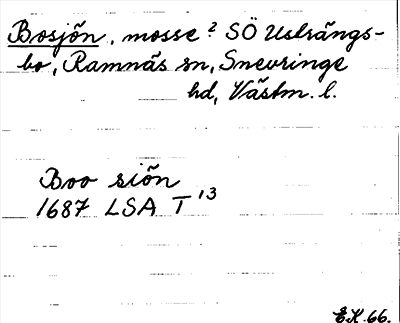 Bosjön, mosse? SÖ Usträngs-
bo, Ramnäs sn, Snevringe
hd, Västm. l.
Boo siön
1687 LSA T 13
E.K. 66.